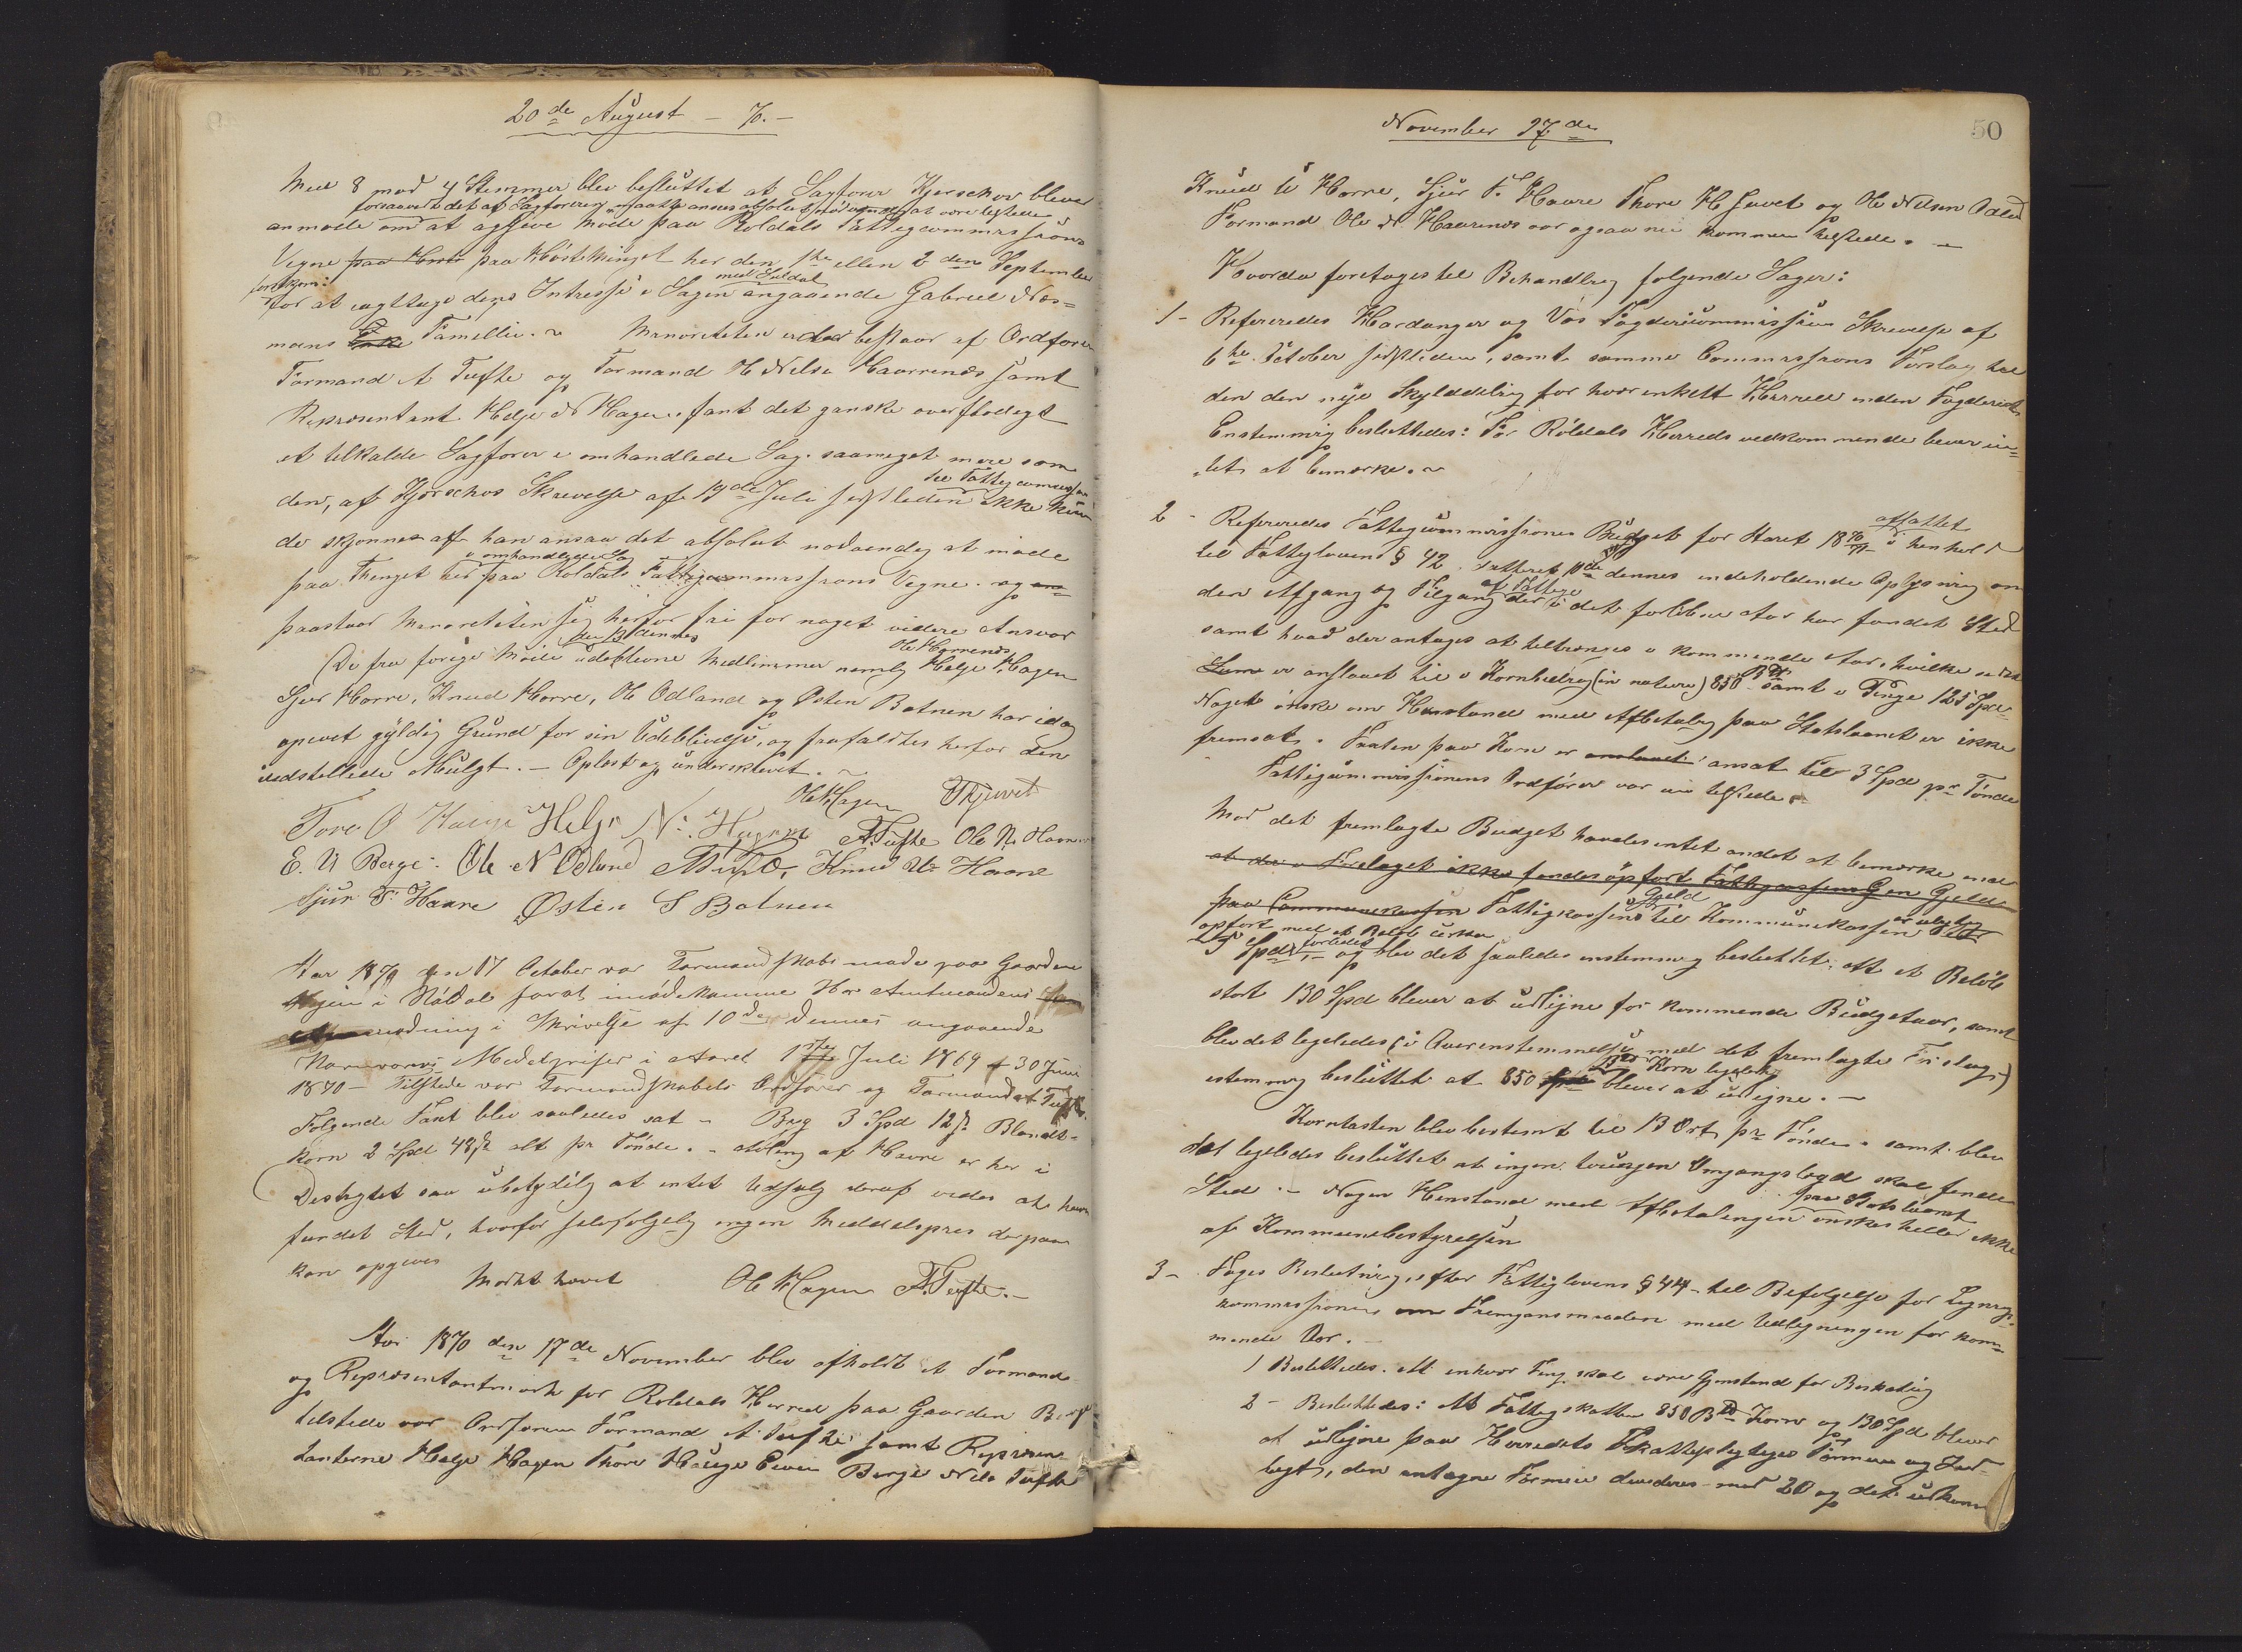 20de August - 70. -
Med 8 mod 4 Stemmer blev besluttet at Sagfører Kjerschow bliver
forsaavidt det af Sagføreren maatte ansees absolut nødvendigt at være tilstede
anmodet om at afgive møde paa Roldals Fattigcommissions
Vegne paa Høstethinget her den 1ste eller 2den September
førstkom:
for at iagttage dens Intresse i Sagen angaaende Gabriel Næs=
med Suldal
mans Enke Familie. Minoriteten der bestaar af Ordfører
Formand A Tufte og Formand O Nilsen Haarrenæs samt
Repræsentant Helge N Hagen, fant det ganske overflødigt
at tilkalde Sagfører i omhandlede Sag, saameget mere som
den, af Kjerschos Skrivelse af 19de Juli sidstleden ikke kun
til Fattigcommission
de skjønnes at han ansaa det absolut nødvendig at møde
i omhandlede Sag
paa Thinget her paa Roldals Fattigcommissions Vegne. og
paastaar Minoriteten sig herfor fri for noget videre Ansvar
De fra forige Møde den 13 dennes udeblevne Medlemmer nemlig Helge Hagen
Ole Haarrenæs
Sjur Horre, Knud Horre, Ole Odland og Østen Botnen har idag
opgivet gyldig Grund for sin Udeblivelse, og frafaldtes herfor den
idestillede Mulgt. - Oplæst og underskrevet. ~
O Hagen T Hjuvet
Tore O Hauge Helge N. Hagen A. Tufte Ole N. Haarre
E. N Berge. Ole N Odland N Tufte, Knud U. Haare
Sjur T. Haare Østen S Botnen
Aar 1870 den 17 October var Formandskabs møde paa Gaarden
Hagen i Rôldal forat imødekomme Hr Amtmandens
Anmodning i Skrivelse af 10de dennes angaaende
Kornvares Medelpriser i Aaret 1ste Juli 1869 - 30 Juni
1870 - Tilstede var Formandskabets Ordfører og Formand A Tufte.
Følgende Taxt blev saaledes sat - Byg 3 Spd 12 ß Blandt=
korn 2 Spd 48 ß alt pr Tønde. - Avling af Havre er her i
Destrigtet saa ubetydelig at intet Udsalg deraf vides at have
fundet Sted, hvorfor selvfølgelig ingen Meddelspris derpaa
kan opgives
Mødet hævet O Hagen A. Tufte. -
Aar 1870 den 17de November blev afholdt et Formand
og Repræsentantmøde for Roldals Herred paa Gaarden Berge
tilstede var Ordføreren Formand A Tufte samt Repræsen=
tanterne Helge Hagen Thore Hauge Even Berge Nils Tufte
50
November 17de
Knud U Horre, Sjur T. Haare Thore H Juvet og Ole Nilsen Odland
Formand Ole N. Haarrenæs var ogsaa nu kommen tilstede. -
Hvorda foretoges til Behandling følgende Sager:
1 - Refereredes Hardanger og Vos Fogdericommissions Skrivelse af
6te October sidstleden, samt samme Commissions Forslag til
den den nye Skylddeling for hver enkelt Herred inden Fogderiet
Enstemmig besluttedes: For Röldals Herreds vedkommende bliver in=
tet at bemærke. ~
2 - Refereredes Fattigcommissionens Budget for Aaret 1870/71 affattet i henhold
til Fattiglovens § 42. dennes indeholdende Oplysning om
den Afgang og Tilgang af Fattige der i det forløbne Aar har fundet Sted
samt hvad der antages at tiltrænges i kommende Aar, hvilke
er anslaaet til i Kornbidrag (in natura) 850 Bd samt i Penge 125 Spd
Noget ønske om Henstand med Afbetaling paa Statslaanet er ikke
fremsat. Taxten paa Korn er anslaaet ansat til 3 Spd pr Tønde
Fattigcommissionens Ordfører var nu tilstede
Mod det fremlagte Budget havdes intet andet at bemærke end
at der i Forslaget ikke fandes opført Fattigcassens Gjeld
paa Communekassen Fattigkassens Gjeld til Kommunekassen
opført med et Beløb cirka
25 Spd, og blev det saaledes enstemmig besluttet: Att et Beløb
stort 130 Spd bliver at udligne for kommende Budgetaar, samt
blev det ligeledes (i Overenstemmelse med det fremlagte Forslag)
enstemmig besluttet at 850 Bd Korn ligeledes bliver at udligne. -
Korntaxten blev bestemt til 13 Ort pr Tønde. samt blev
det ligeledes besluttet at ingen tvungen Omgangslægd skal finde
Sted. - Nogen Henstand med Afbetalingen paa Statslaanet ønskes heller ikke
af Kommunebestyrelsen
3 - Toges Beslutning efter Fattiglovens § 44 - til Befølgelse for Lignings=
kommissionen om Fremgansmaaden med Udligningen for kom=
mende Aar. -
1 Besluttedes. At enhver Ting skal være Gjenstand for Beskatning
2 - Besluttedes: At Fattigskatten 850 Bd Korn og 130 Spd bliver
at udligne paa Herredets Skattepligtiges Formue og Ind=
tægt, den antagne Formue divideres med 20 og det udkom